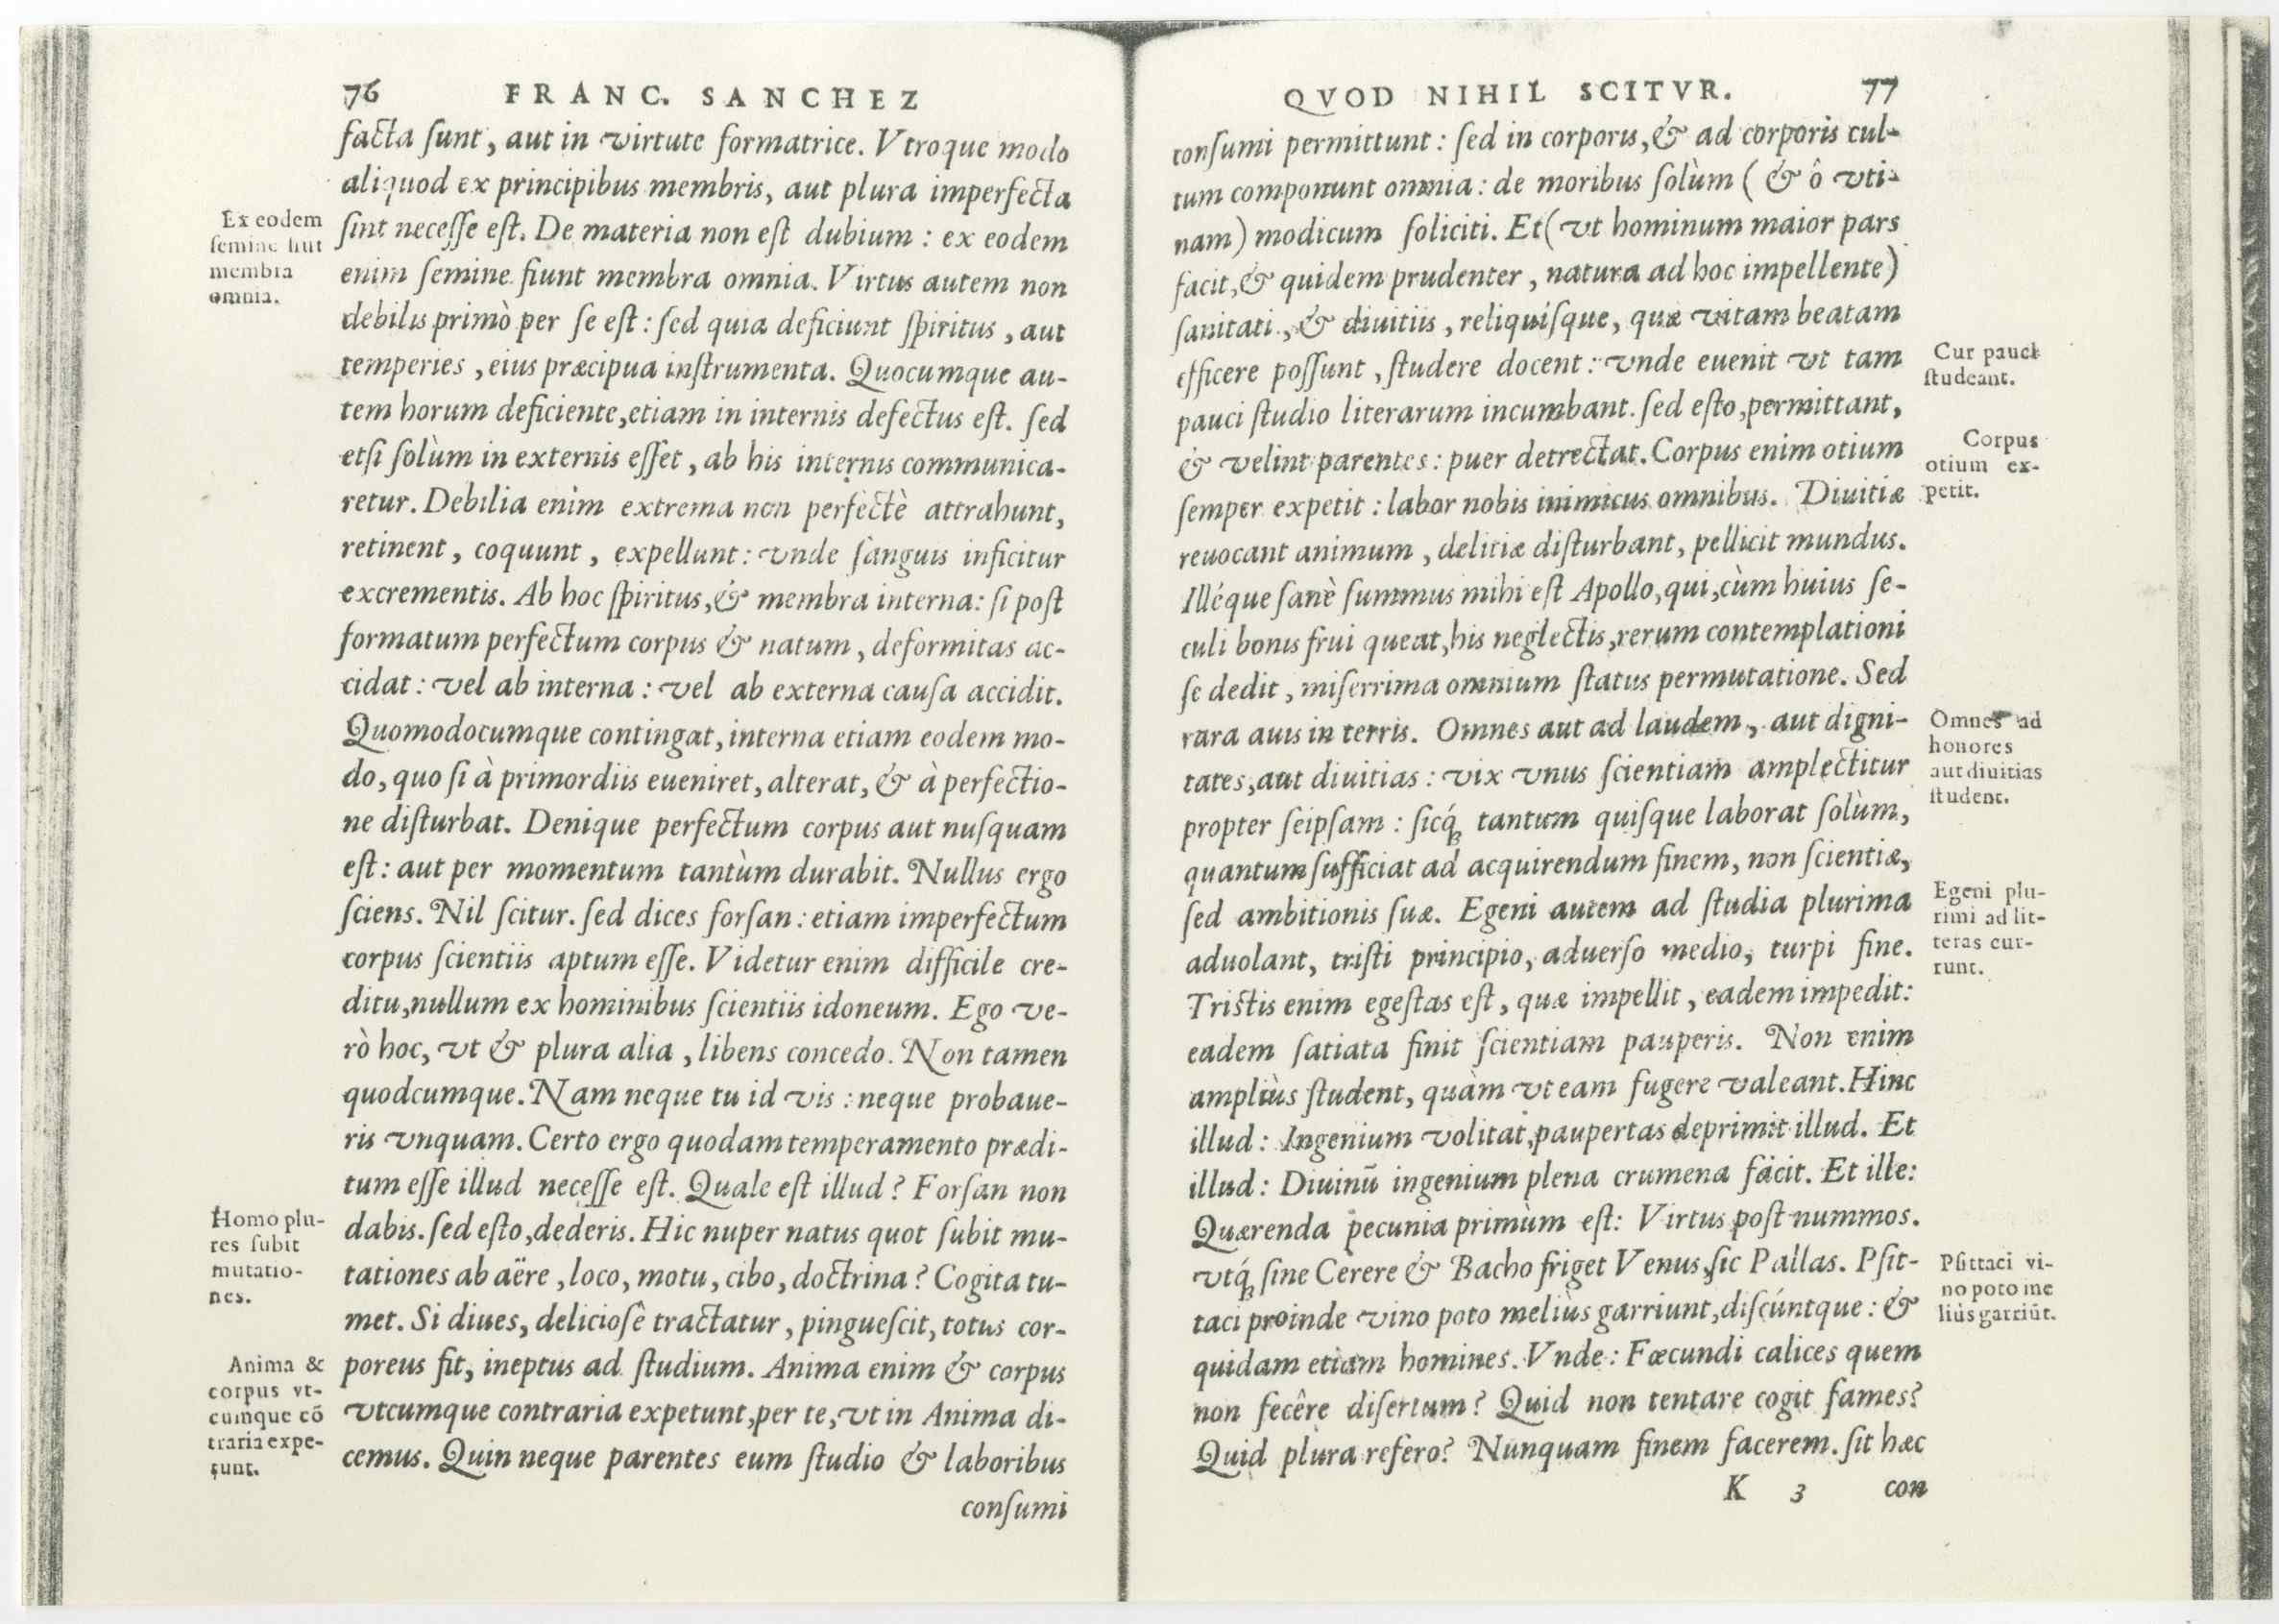 76 FRANC. SANCHEZ
facta ſunt, aut in virtute formatrice. Vtroque modo
aliquod ex principibus membris, aut plura imperfecta
ſint neceſſe eſt. De materia non eſt dubium : ex eodem
enim ſemine fiunt membra omnia. Virtus autem non
debilis primò per ſe eſt : ſed quia deficiunt ſpiritus, aut
temperies, eius præcipua inſtrumenta. Quocumque au-
tem horum deficiente, etiam in internis defectus eſt. ſed
etſi ſolùm in externis eſſet, ab his internis communica-
retur. Debilia enim extrema non perfectè attrahunt,
retinent, coquunt, expellunt : vnde ſanguis inficitur
excrementis. Ab hoc ſpiritus, & membra interna : ſi poſt
formatum perfectum corpus & natum, deformitas ac-
cidat : vel ab interna : vel ab externa cauſa accidit.
Quomodocumque contingat, interna etiam eodem mo-
do, quo ſi à primordiis eueniret, alterat, & à perfectio-
ne diſturbat. Denique perfectum corpus aut nuſquam
eſt : aut per momentum tantùm durabit. Nullus ergo
ſciens. Nil ſcitur. ſed dices forſan : etiam imperfectum
corpus ſcientiis aptum eſſe. Videtur enim difficile cre-
ditu, nullum ex hominibus ſcientiis idoneum. Ego ve-
rò hoc, vt & plura alia, libens concedo. Non tamen
quodcumque. Nam neque tu id vis : neque probaue-
ris vnquam. Certo ergo quodam temperamento prædi-
tum eſſe illud neceſſe eſt. Quale eſt illud? Forſan non
dabis. ſed eſto, dederis. Hic nuper natus quot ſubit mu-
tationes ab aëre, loco, motu, cibo, doctrina? Cogita tu-
met. Si diues, delicioſê tractatur, pingueſcit, totus cor-
poreus fit, ineptus ad ſtudium. Anima enim & corpus
vtcumque contraria expetunt, per te, vt in Anima di-
cemus. Quin neque parentes eum ſtudio & laboribus
conſumi
Ex eodem
ſemine fiut
membra
omnia.
Homo plu-
res ſubit
mutatio-
nes.
Anima &
corpus vt-
cumque cõ
traria expe-
tunt.
QVOD NIHIL SCITVR. 77
conſumi permittunt : ſed in corporis, & ad corporis cul-
tum componunt omnia : de moribus ſolùm ( & ô vti-
nam ) modicum ſoliciti. Et ( vt hominum maior pars
facit, & quidem prudenter, natura ad hoc impellente )
ſanitati, & diuitiis, reliquiſque, quæ vitam beatam
efficere poſſunt, ſtudere docent : vnde euenit vt tam
pauci ſtudio literarum incumbant. ſed eſto, permittant,
& velint parentes : puer detrectat. Corpus enim otium
ſemper expetit : labor nobis inimicus omnibus. Diuitiæ
reuocant animum, delitiæ diſturbant, pellicit mundus.
Illéque ſanè ſummus mihi eſt Apollo, qui, cùm huius ſe-
culi bonis frui queat, his neglectis, rerum contemplationi
ſe dedit, miſerrima omnium ſtatus permutatione. Sed
rara auis in terris. Omnes aut ad laudem, aut digni-
tates, aut diuitias : vix vnus ſcientiam amplectitur
propter ſeipſam : ſicq́; tantum quiſque laborat ſolùm,
quantum ſufficiat ad acquirendum finem, non ſcientiæ,
ſed ambitionis ſuæ. Egeni autem ad ſtudia plurima
aduolant, triſti principio, aduerſo medio, turpi fine.
Triſtis enim egeſtas eſt, quæ impellit, eadem impedit :
eadem ſatiata finit ſcientiam pauperis. Non enim
ampliùs ſtudent, quàm vt eam fugere valeant. Hinc
illud : Ingenium volitat, paupertas deprimit illud. Et
illud : Diuinũ ingenium plena crumena facit. Et ille :
Quærenda pecunia primùm eſt : Virtus poſt nummos.
vtq́; ſine Cerere & Bacho friget Venus, ſic Pallas. Pſit-
taci proinde vino poto meliùs garriunt, diſcúntque : &
quidam etiam homines. Vnde : Fœcundi calices quem
non fecêre diſertum? Quid non tentare cogit fames?
Quid plura refero? Nunquam finem facerem. ſit hæc
K 3 con
Cur pauci
ſtudeant.
Corpus
otium ex-
petit.
Omnes ad
honores
aut diuitias
ſtudent.
Egeni plu-
rimi ad lit-
teras cur-
runt.
Pſittaci vi-
no poto me
liùs garriũt.